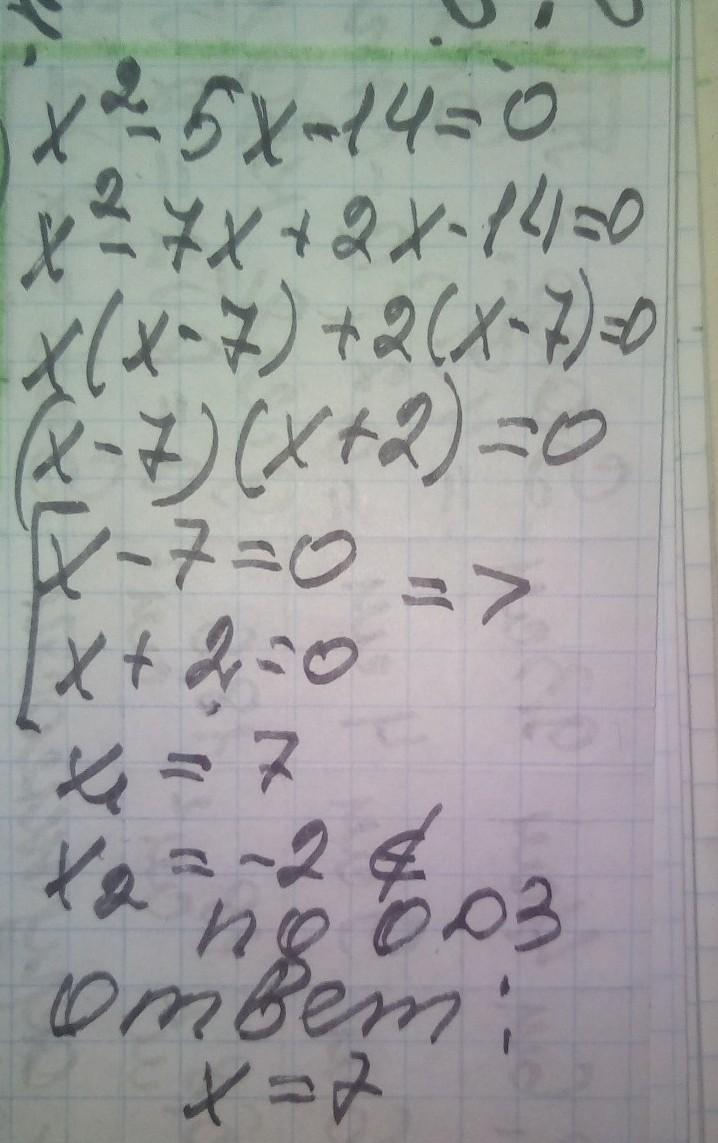 x² - 5x - 14 = 0
x² - 7x + 2x - 14 = 0
x(x - 7) + 2(x - 7) = 0
(x - 7)(x + 2) = 0
[x - 7 = 0
x + 2 = 0 =>
x₁ = 7
x₂ = -2 ∉
по ОДЗ
Ответ:
x = 7